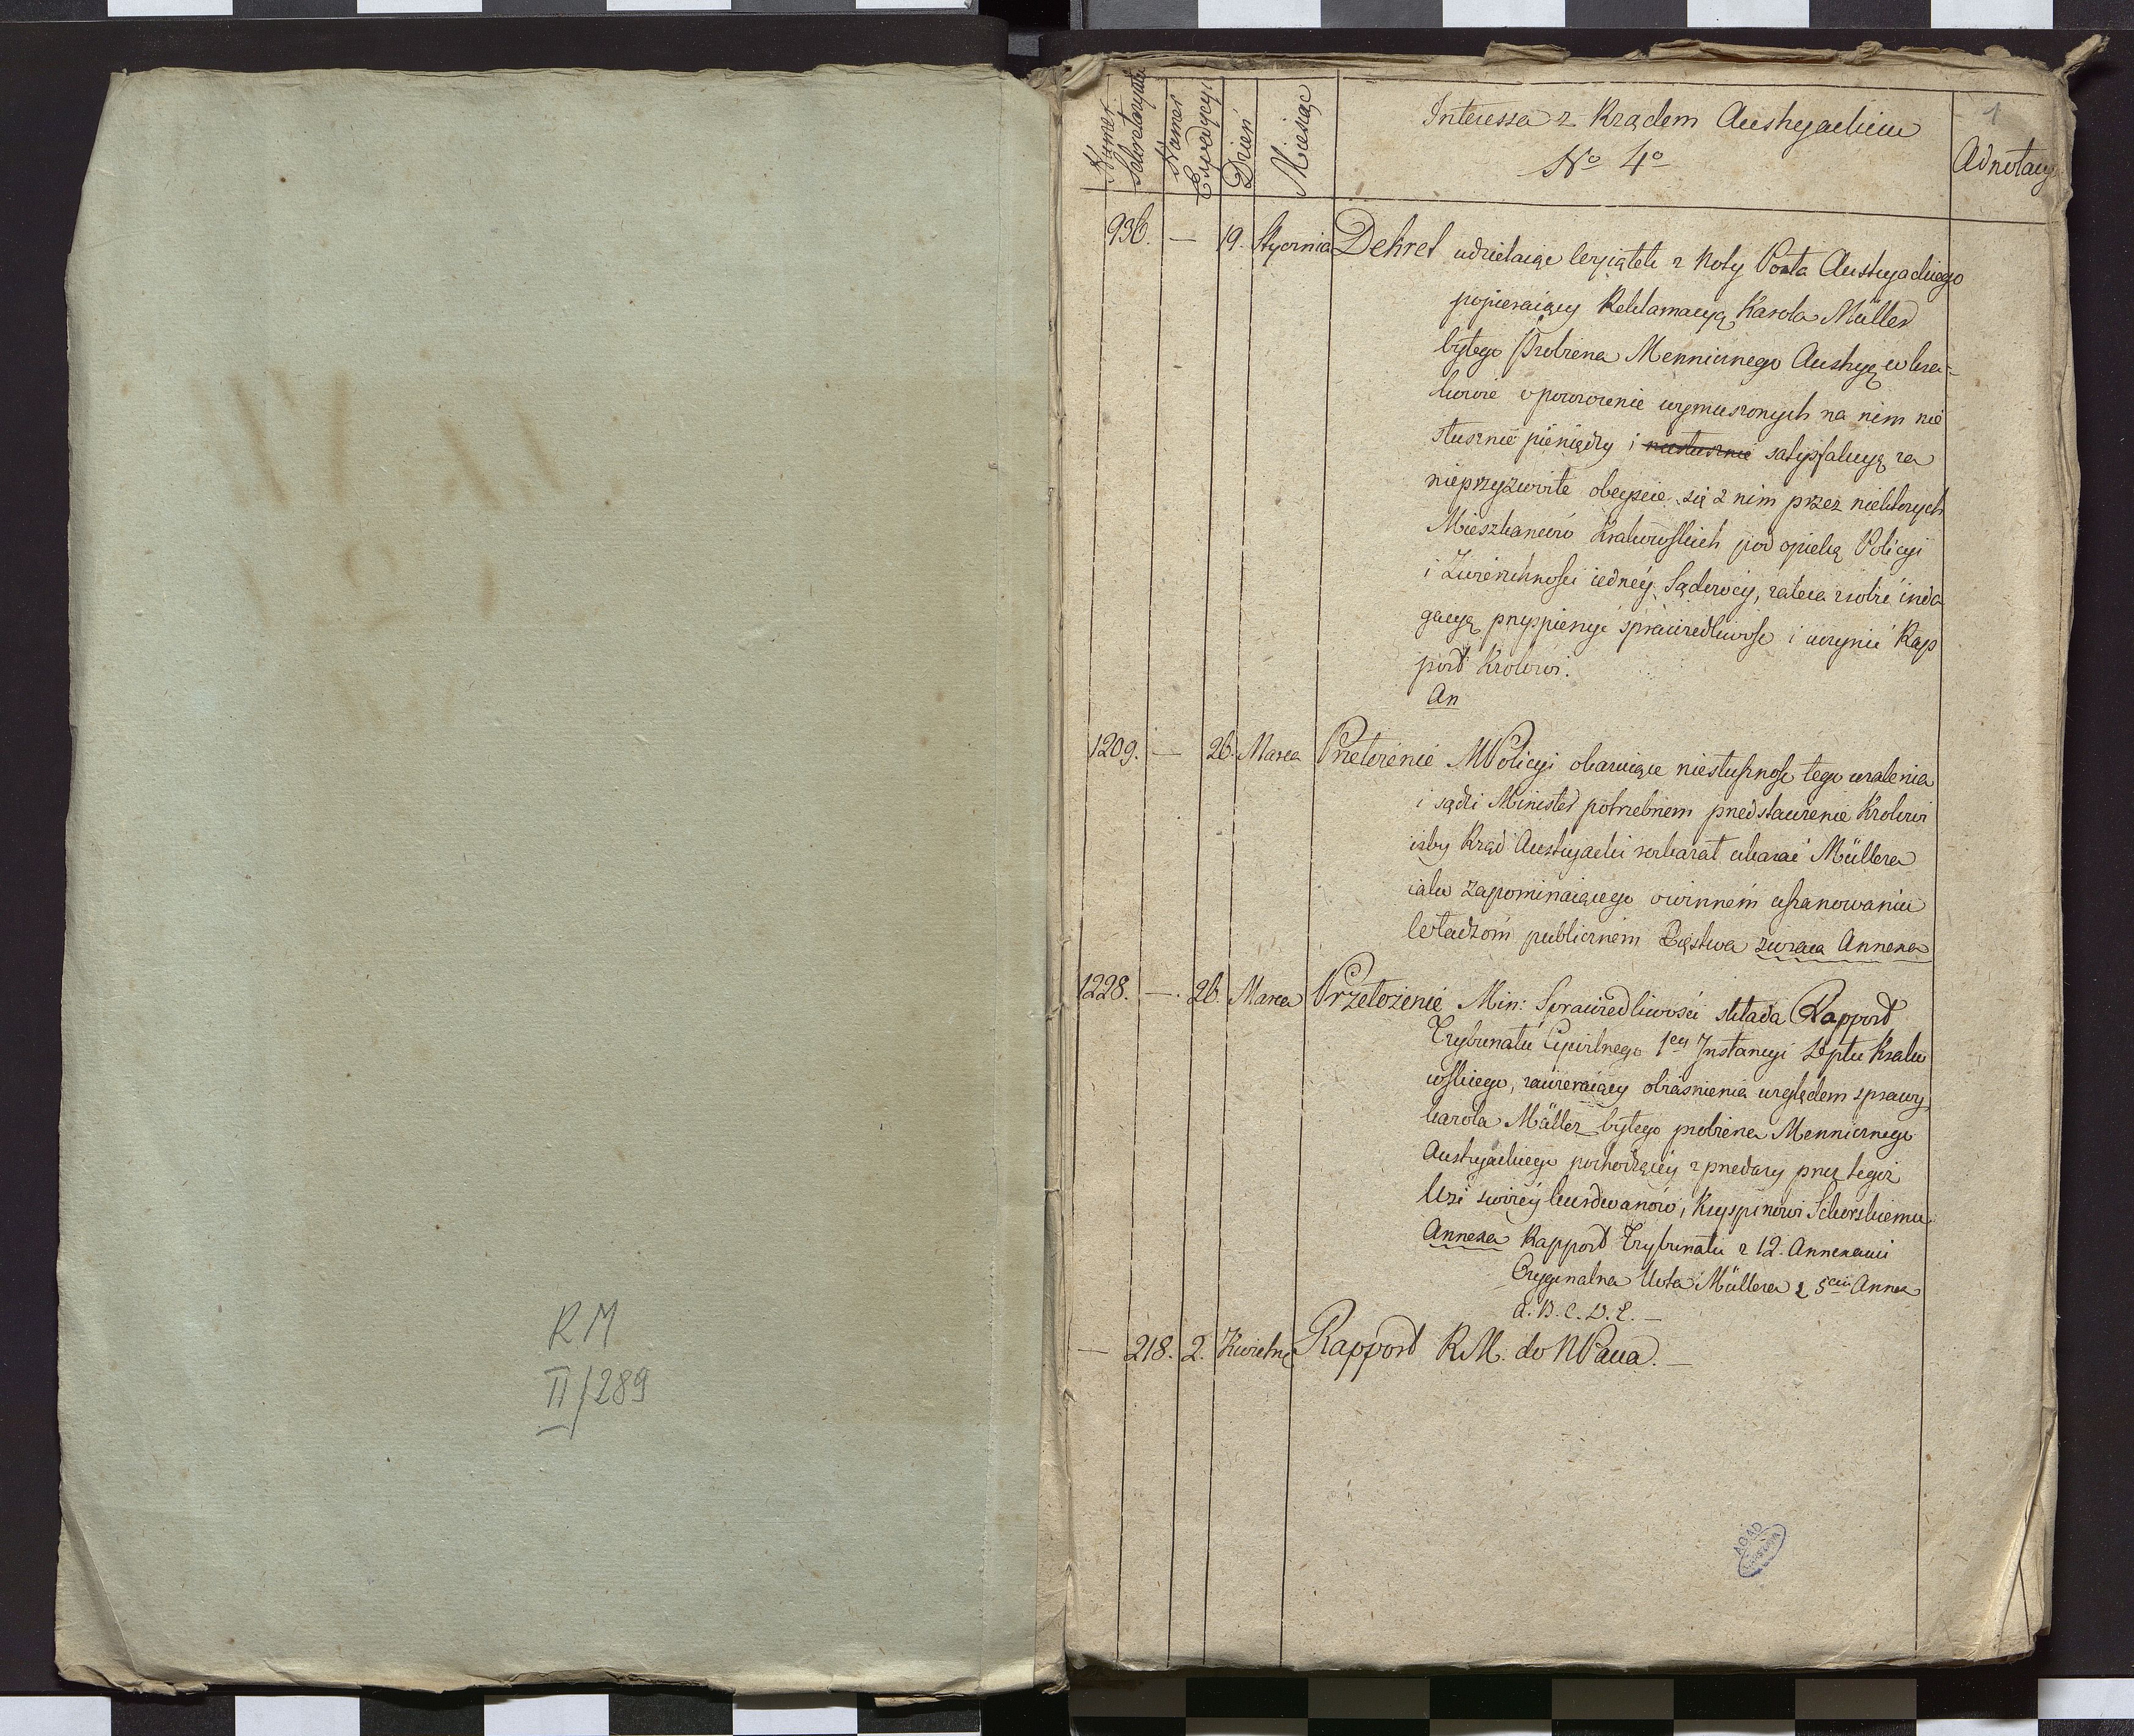 RM
II/289
1
Numer Sekretaryatu
Numer Expedycyi
Dzień
Miesiąc
Interessa z Rządem Austryackim
No 4o
Adnotacye
936. — 19. Stycznia Dekret udzielaiąc wyiątek z Noty Posła Austryackiego
popieraiący Reklamacyą Karola Müller
byłego Probierza Menniczego Austryą w Kra-
kowie o powrocenie wymuszonych na nim nie
słusznie pieniędzy i niesłusznie satysfakcyą za
nieprzyzwoite obeyście się z nim przez niektorych
Mieszkancow Krakowskich pod opieką Policyi
i Zwierzchności iedney Sądowey, zaleca zrobić inda
gacyą przyspieszyć sprawiedliwość i uczynić Rap
port Krolowi.
An
1209. — 26. Marca Przełożenie M Policyi okazuiące niesłuszność tego użalenia
i sądzi Minister potrzebnem przedstawienie Krolowi
iżby Rząd Austryacki rozkazał ukarać Müllera
iako zapominaiącego o winném uszanowaniu
władzóm publicznem Xięstwa zwraca Annexa
1228. — 26. Marca Przełożenie Min: Sprawiedliwości składa Rapport
Trybunału Cywilnego 1ey Instancyi Deptu Krako
wskiego, zawieraiący obiaśnienia względem sprawy
Karola Müller byłego probierza Menniczego
Austryackiego pochodzącey z przedaży przez tegoż
Wsi swoiéy Kurdwanów, Kryspinowi Sikorskiemu
Annexa Rapport Trybunału z 12. Annexami
Oryginalna Nota Müllera z 5cią Annex
A. B. C. D. E. —
— 218. 2. Kwietnia Rapport R.M. do N Pana. —
AGAD
WARSZAWA